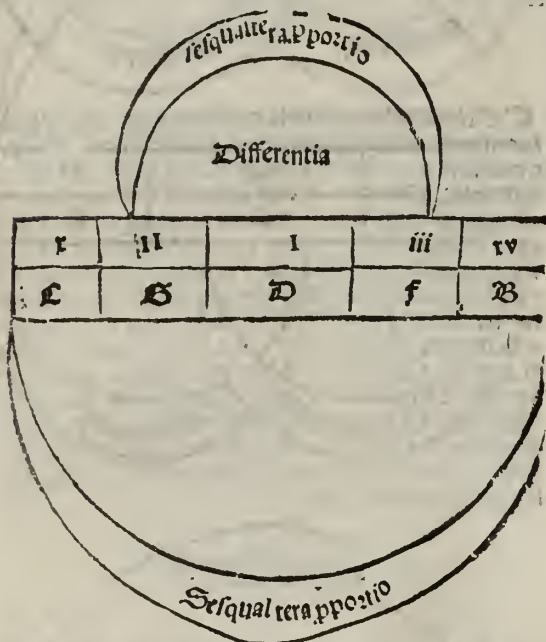 sesqualtera ꝓportio
Differentia
x II I iii xv
C G D f B
Sesqualtera ꝓportio